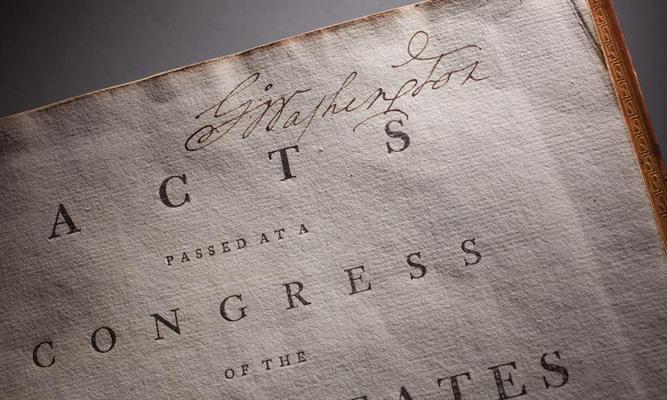 G:Washington
ACTS
PASSED AT A
CONGRESS
OF THE
TATES